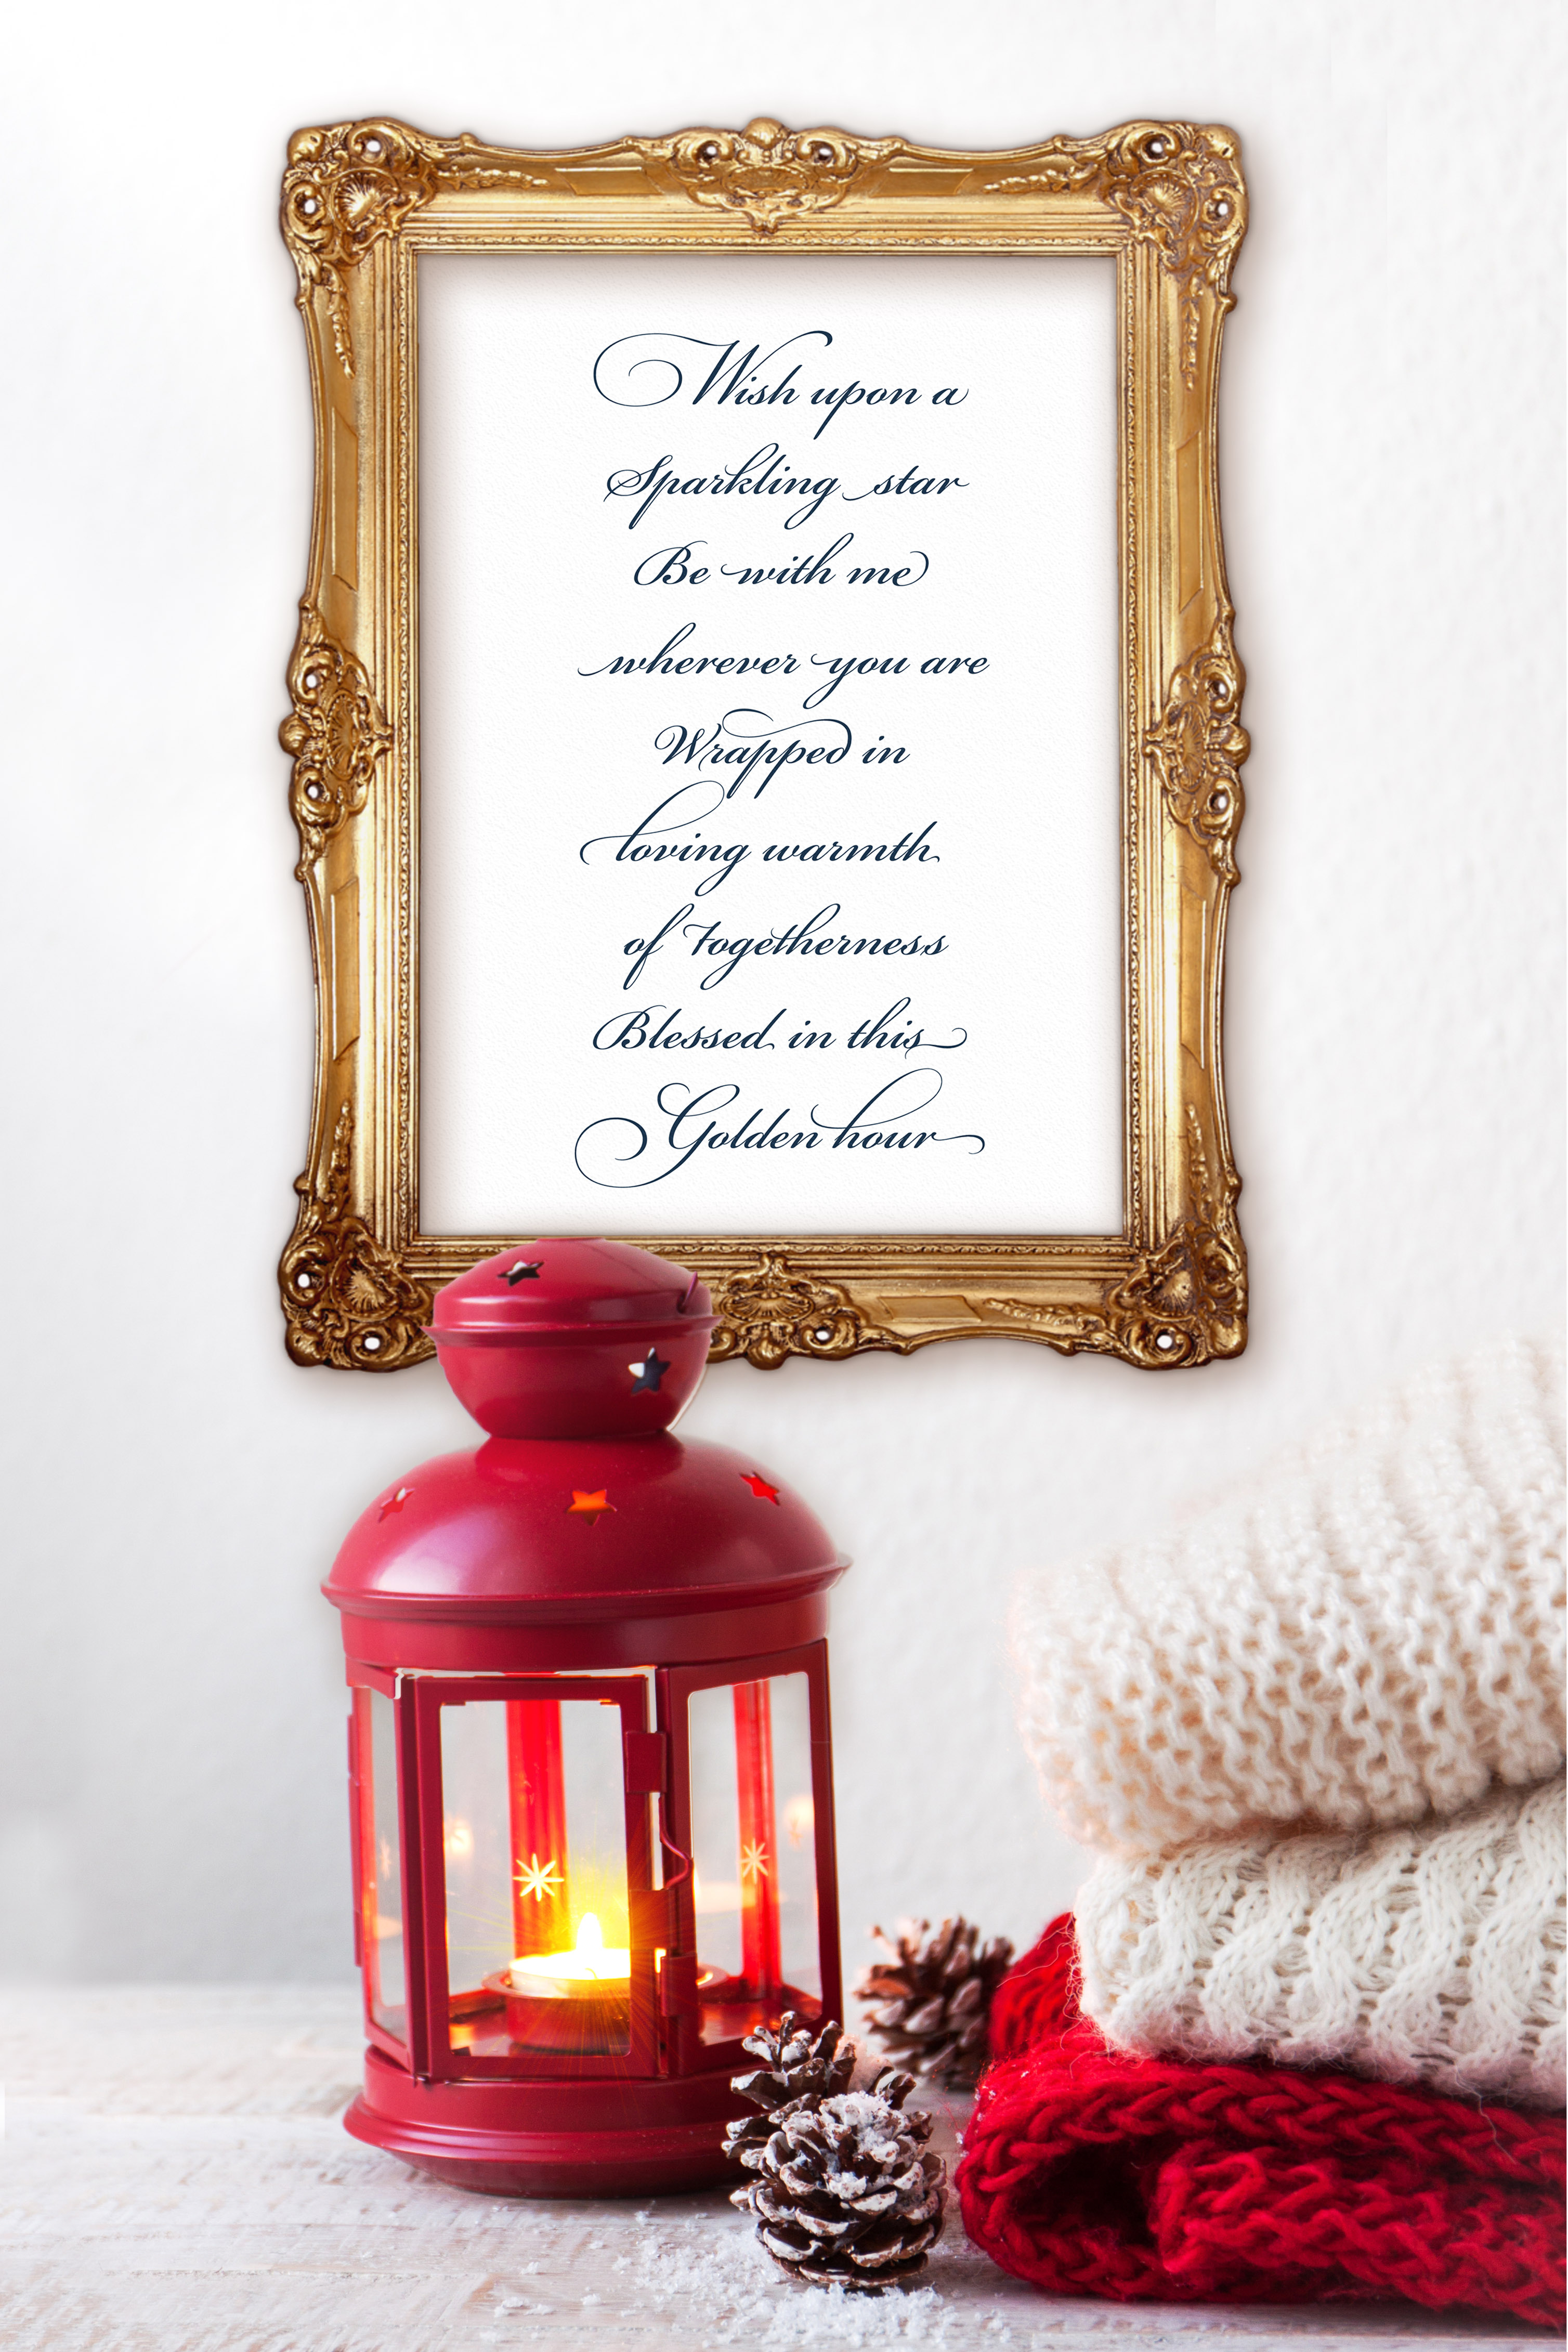 Wish upon a
Sparkling star
Be with me
wherever you are
Wrapped in
loving warmth
of togetherness
Blessed in this
Golden hour